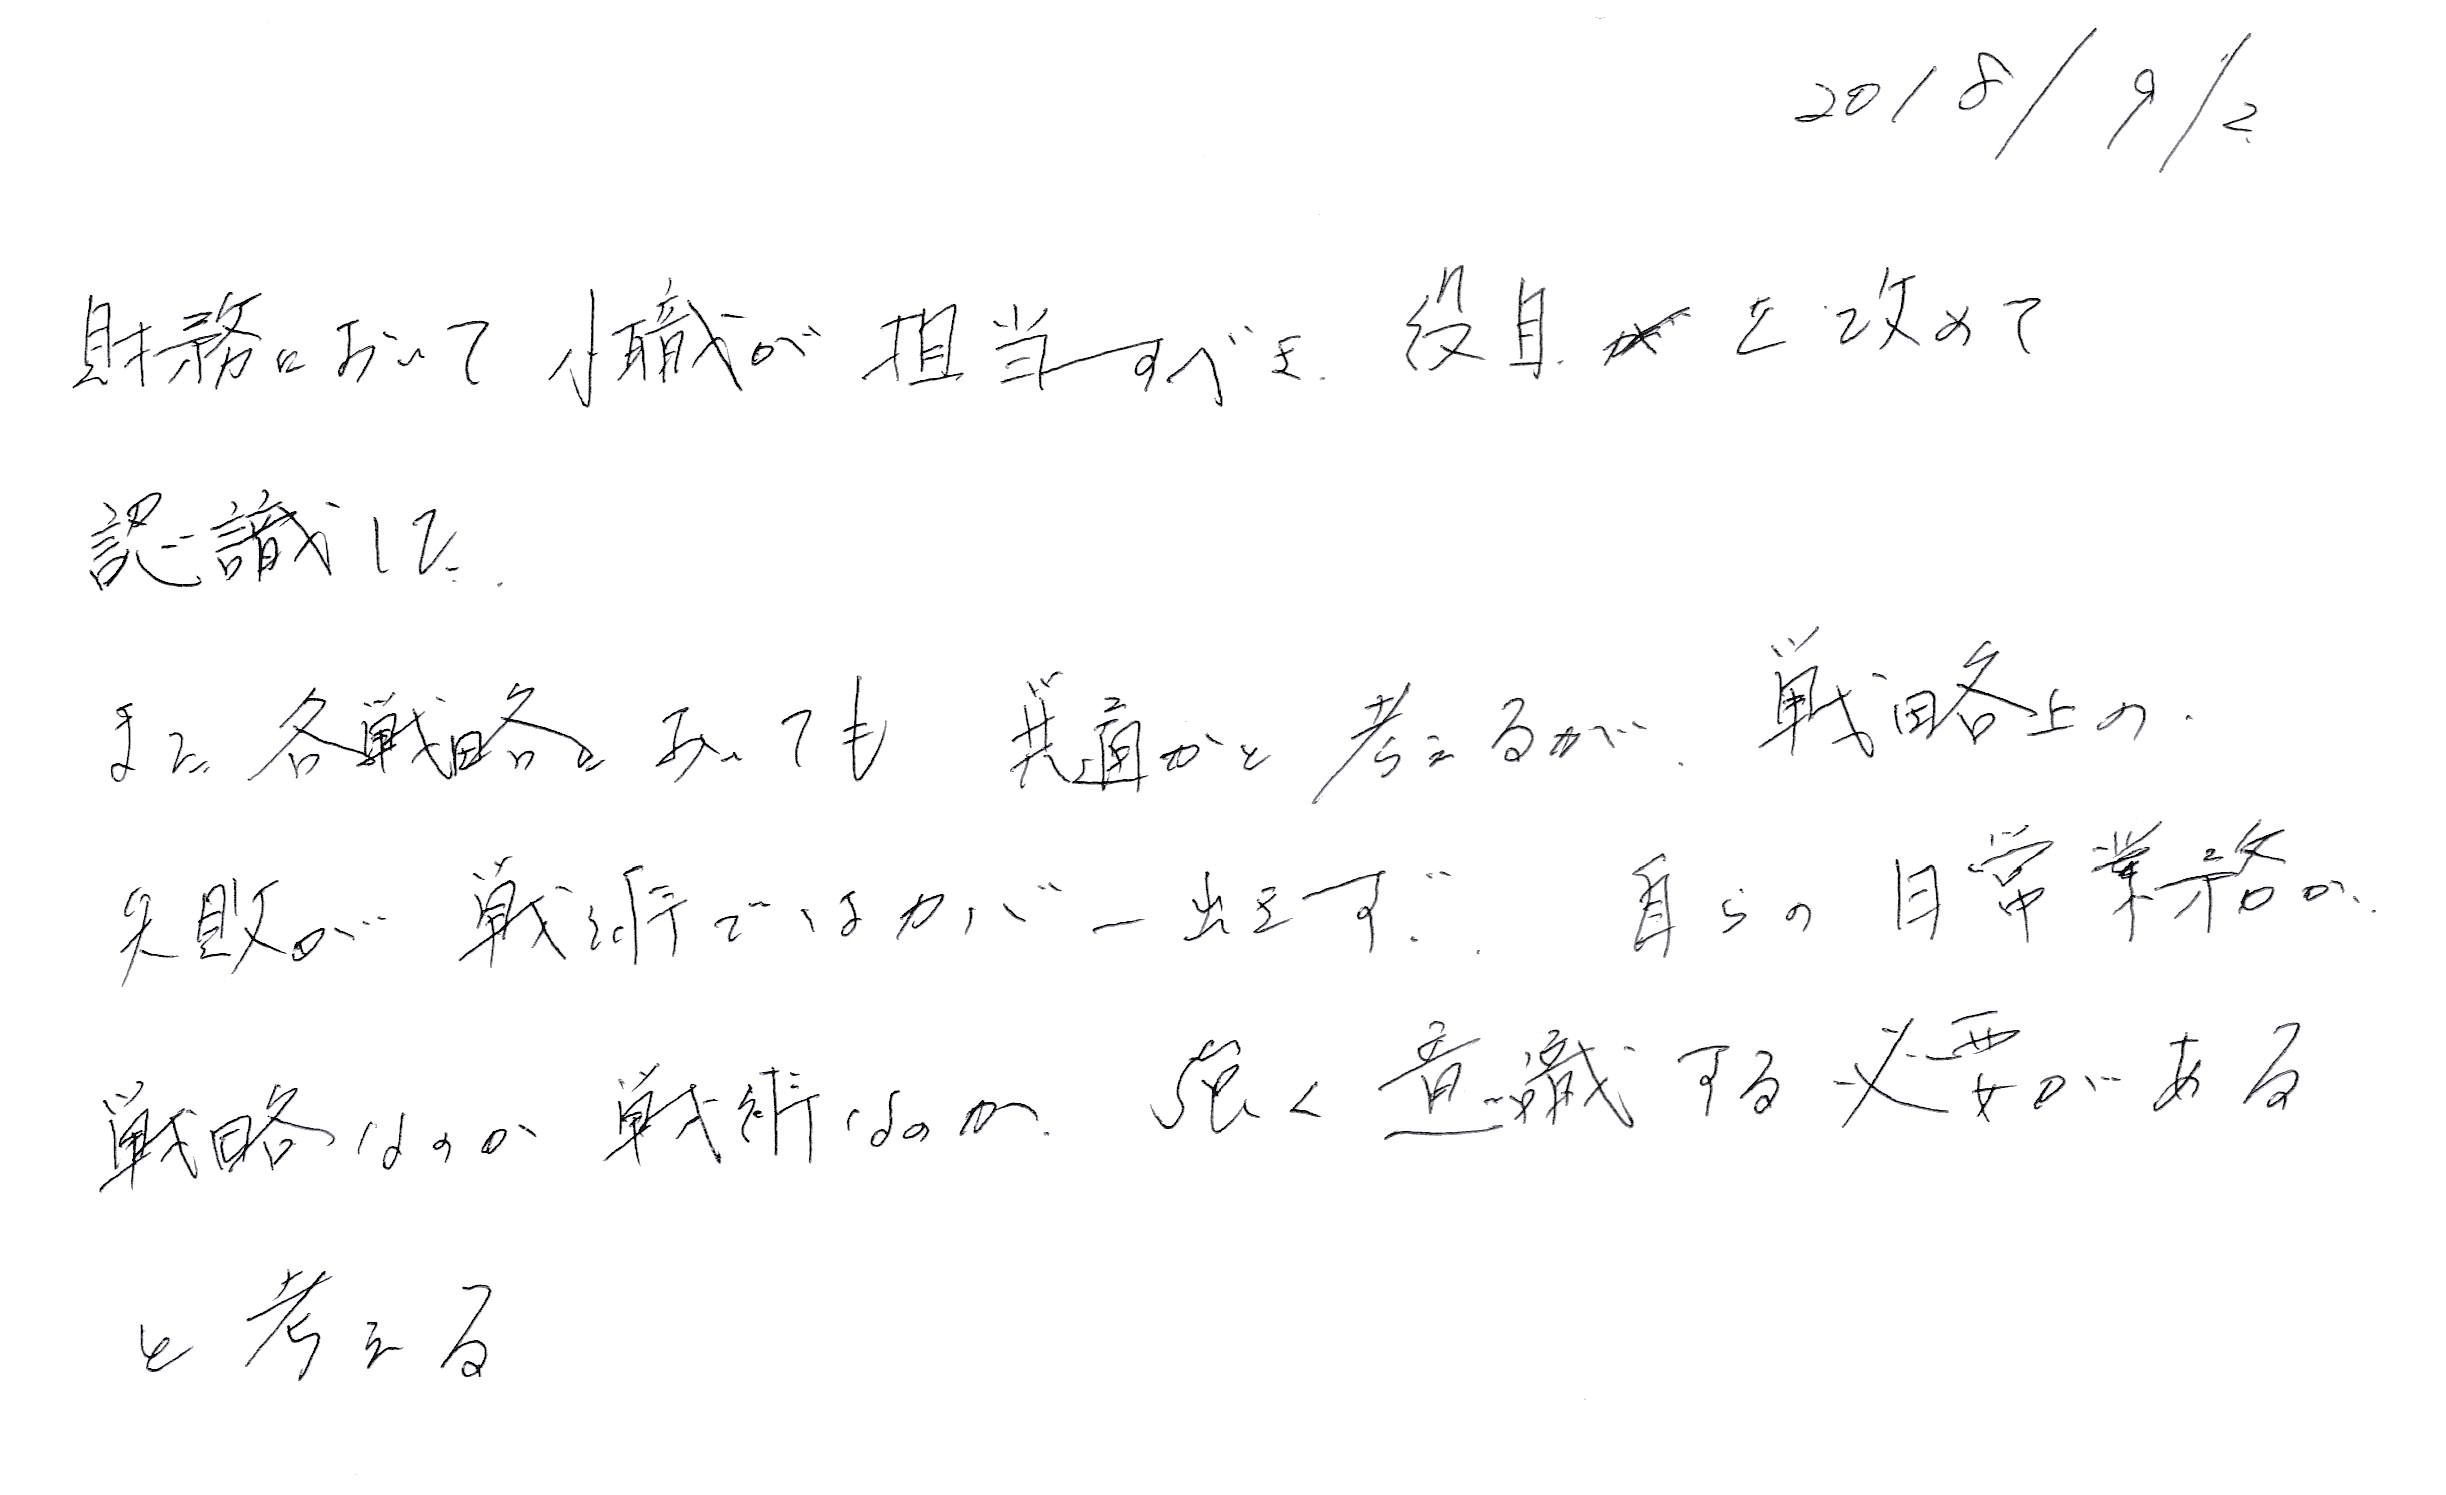 2018/9/2
財務において小職が担当すべき役目を改めて
認識した.
また各戦略においても共通かと考えるが、戦略上の
失敗が戦術ではカバー出来ず、自らの日常業務が
戦略なのか戦術なのか強く意識する必要がある
と考える